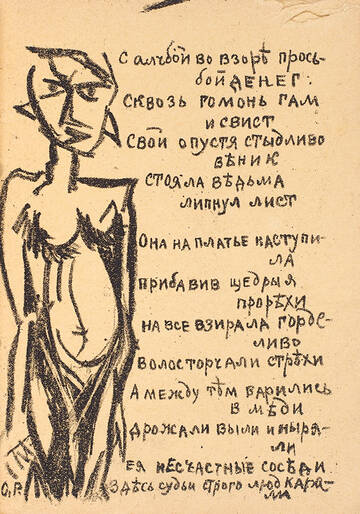 С алчбой во взорѣ прось-
бой денег:
Сквозь гомонь гам
и свист
Свой опустя стыдливо
вѣник
Стояла вѣдьма
липнул лист
Она на платье наступи-
ла
Прибавив щедрыя
прорѣхи
на все взирала горде-
ливо
волос торчали стрѣхи
А между тѣм варились
в мѣди
Дрожали выли и ныря-
ли
ея несчастные сосѣди
Здѣсь судьи строго люд кара-
ли
О.Р.